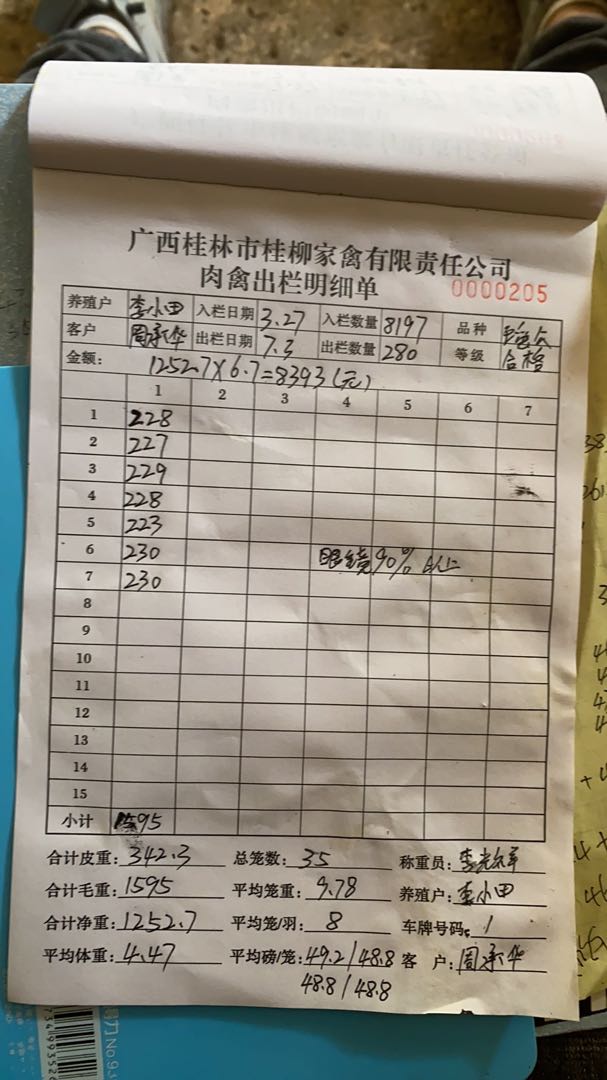 广西桂林市桂柳家禽有限责任公司
肉禽出栏明细单 0000205
养殖户 李小田 入栏日期 3.27 入栏数量 8197 品种
客户 周承华 出栏日期 7.3 出栏数量 280 等级 合格
金额： 1252.7×6.7=8393(元)
1 2 3 4 5 6 7
1 228
2 227
3 229
4 228
5 223
6 230 眼镜90%以上
7 230
8
9
10
11
12
13
14
15
小计 1595
合计皮重：342.3 总笼数：35 称重员：
合计毛重：1595 平均笼重：9.78 养殖户：李小田
合计净重：1252.7 平均笼/羽：8 车牌号码： 1
平均体重：4.47 平均磅/笼：49.2/48.8 客 户：周承华
48.8/48.8